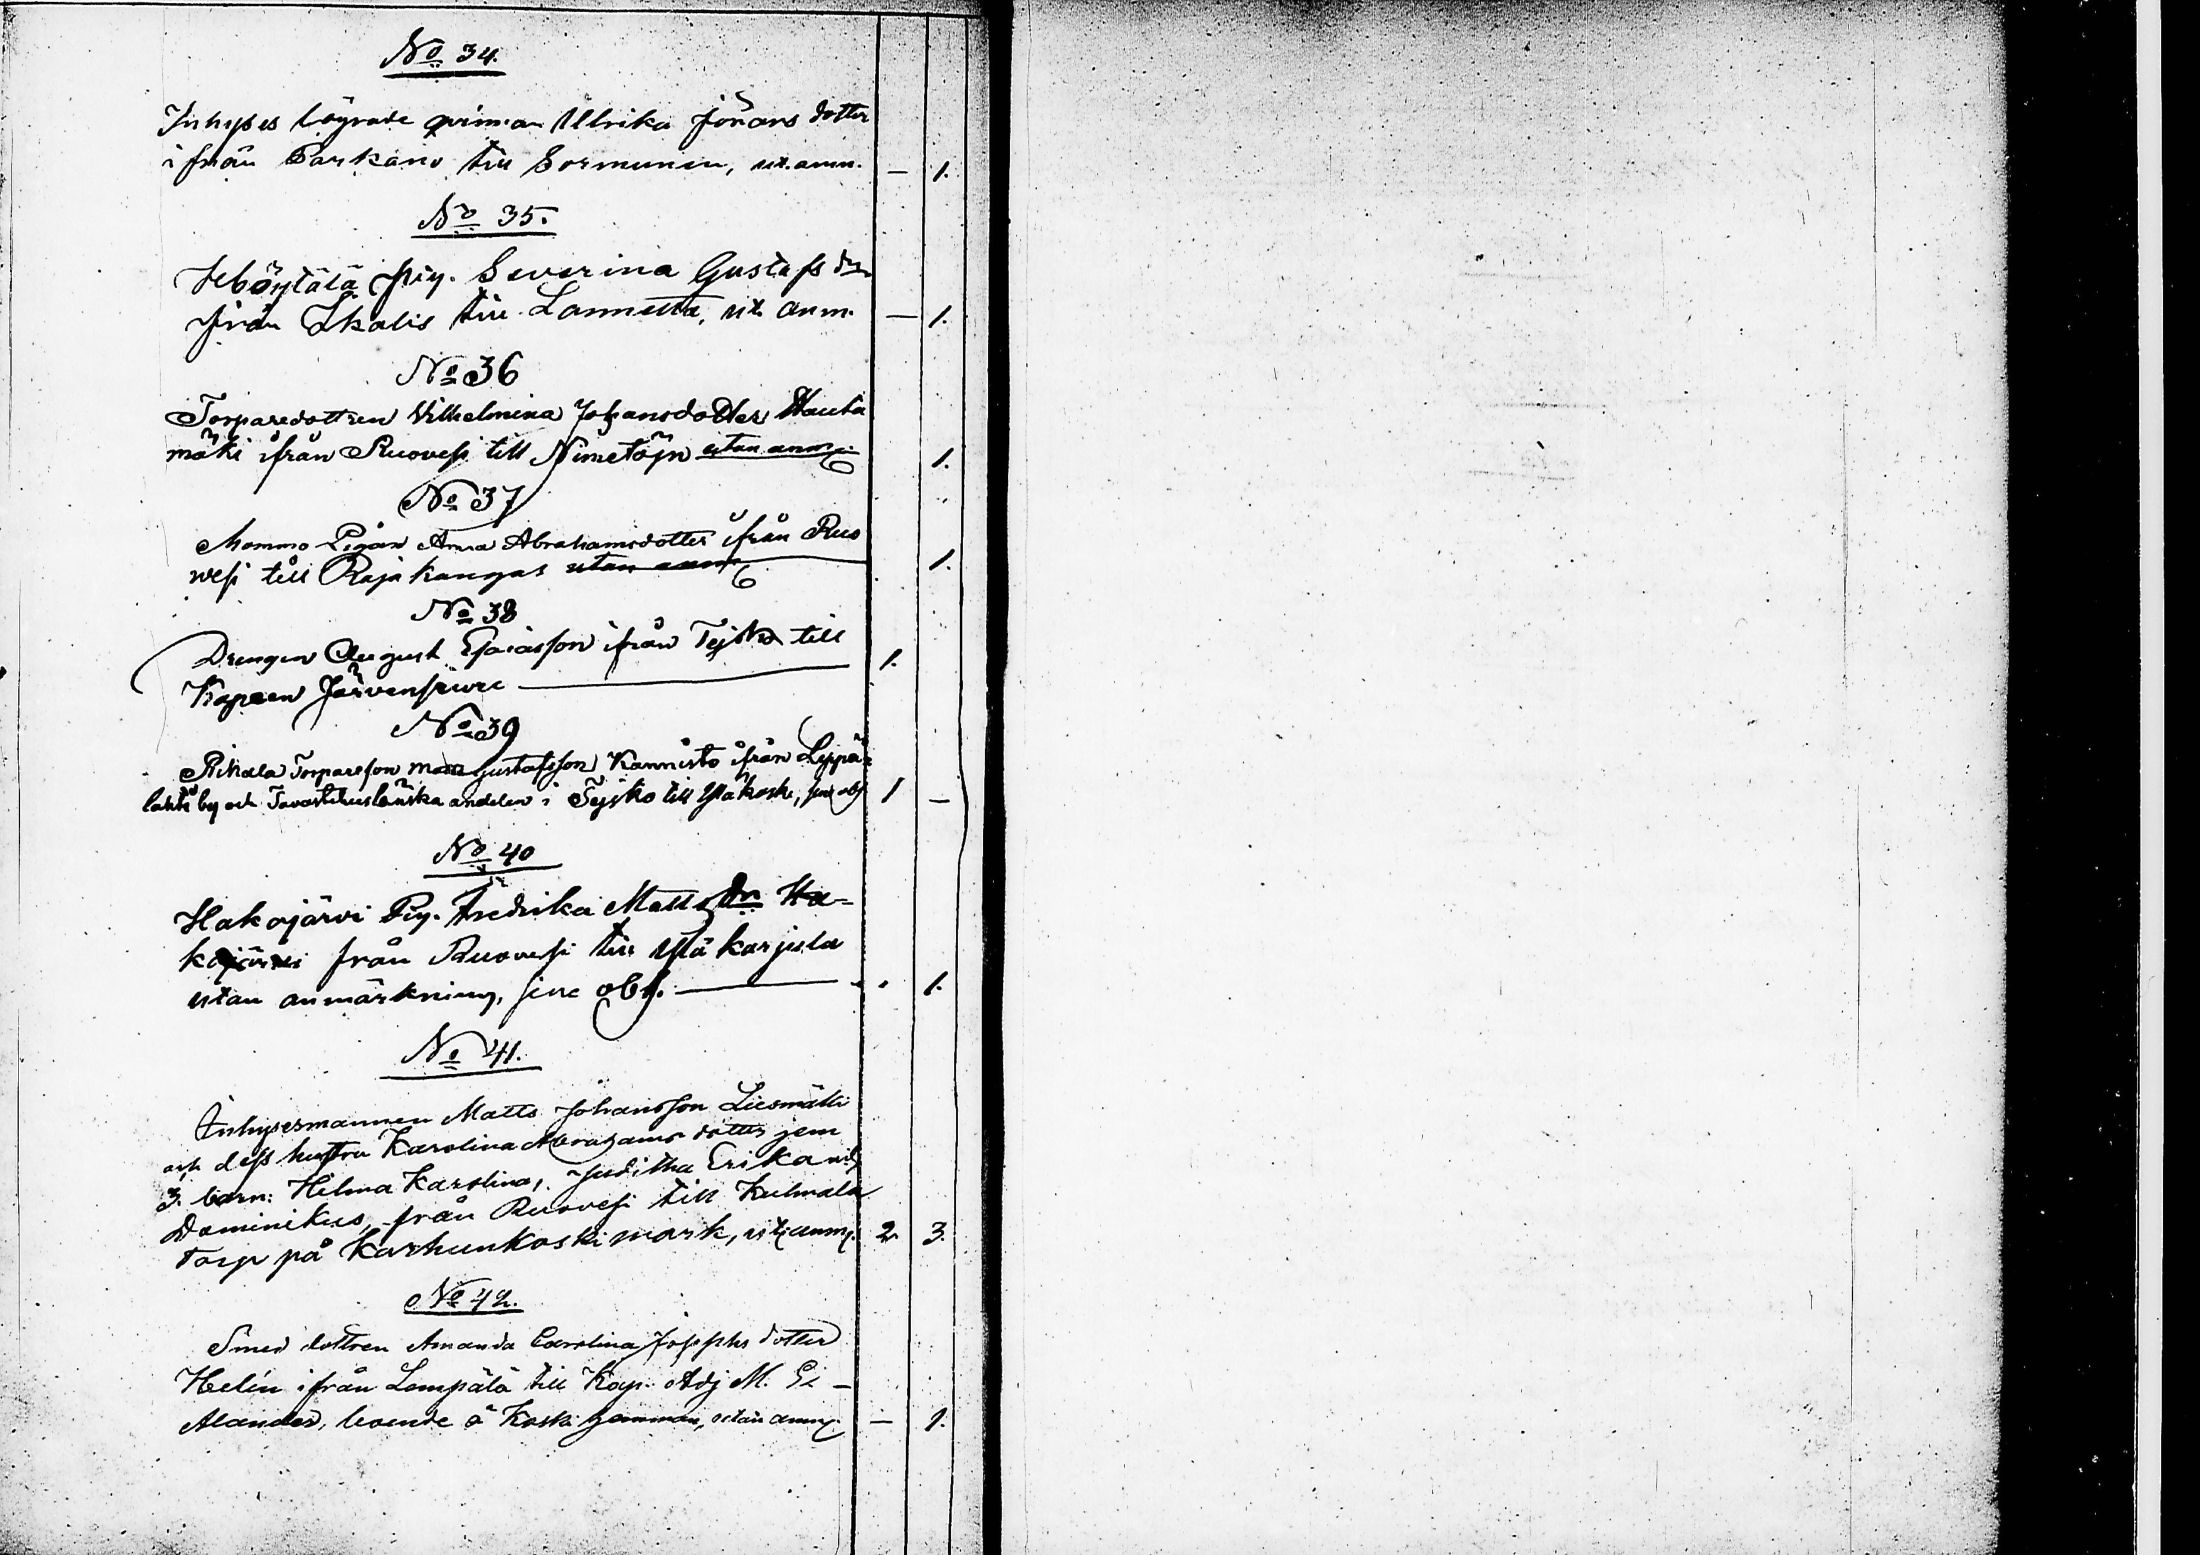 No 34.
Inhyses lägrade qvinnan Ullrika Jörans dotter
ifrån Parkano till Sormunen, ut. anm. — 1.
No 35.
pig. Severina Gustafs dr
från Ikalis till Lannetta, ut. anm. — 1.
No 36
Torparedottren Vilhelmina Johansdotter Hauta
mäki ifrån Ruovesi till Nimetöjn utan anm. 1.
No 37
Mommo Pigan Anna Abrahamsdotter ifrån Ruo
wesi till Rajakangas utan anm 1.
No 38
Drengen August Esaiasson ifrån Tejsko till 1.
Kapeen Järvenpä
No 39
Rikala Torpareson Gustafsson Kannisto ifrån Leppä-
lahti by och Tavastehuslänska andelen i Tejsko till Yläkoski, sine obs. 1 —
No 40
Hakojärvi Pig. Fredrika Matts dr Ha-
kojärvi från Ruovesi till Ylä karjula
utan anmärkning, sine obs. 1.
No 41.
Inhysesmannen Matts Johansson Liesmäki
och dess hustru Karolina Abrahams dotter jem
3. barn: Hilma Karolina, Juditha Erika och
Dominikus, från Ruovesi till Kulmala
Torp på Karhunkoski mark, ut. anm. 2. 3.
No 42.
Smed dottren Amanda Carolina Josephs dotter
Helin ifrån Lempälä till Kap. Adj M. Ei-
Alander, boende å Koski hemman, utan anm. — 1.